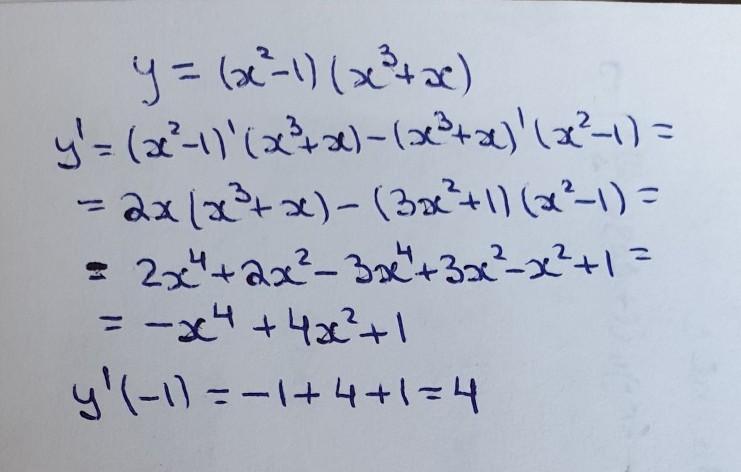 y = (x²-1)(x³+x)
y' = (x²-1)'(x³+x)-(x³+x)'(x²-1) =
= 2x(x³+x)-(3x²+1)(x²-1) =
= 2x⁴+2x²-3x⁴+3x²-x²+1 =
= -x⁴+4x²+1
y'(-1) = -1+4+1=4